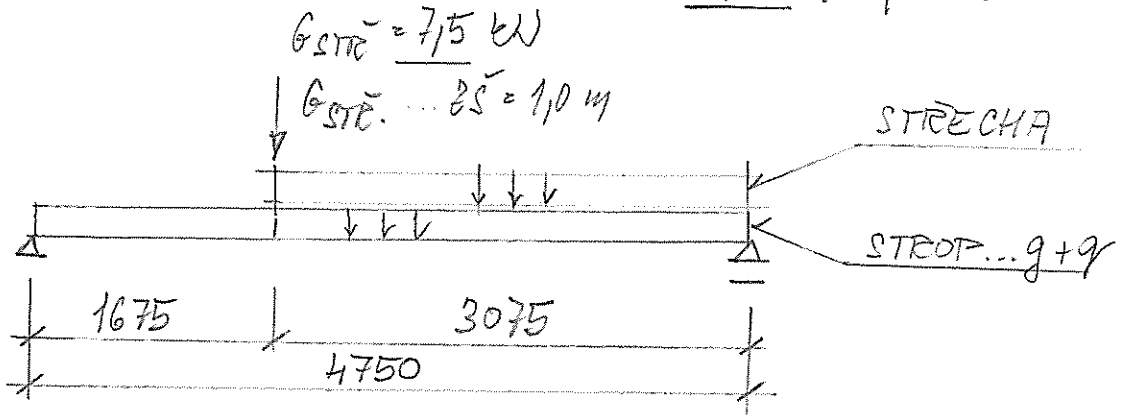 G STŘ = 7,5 kN
G STŘ. ... ZŠ = 1,0 m
STŘECHA
STROP... g+q
1675
3075
4750